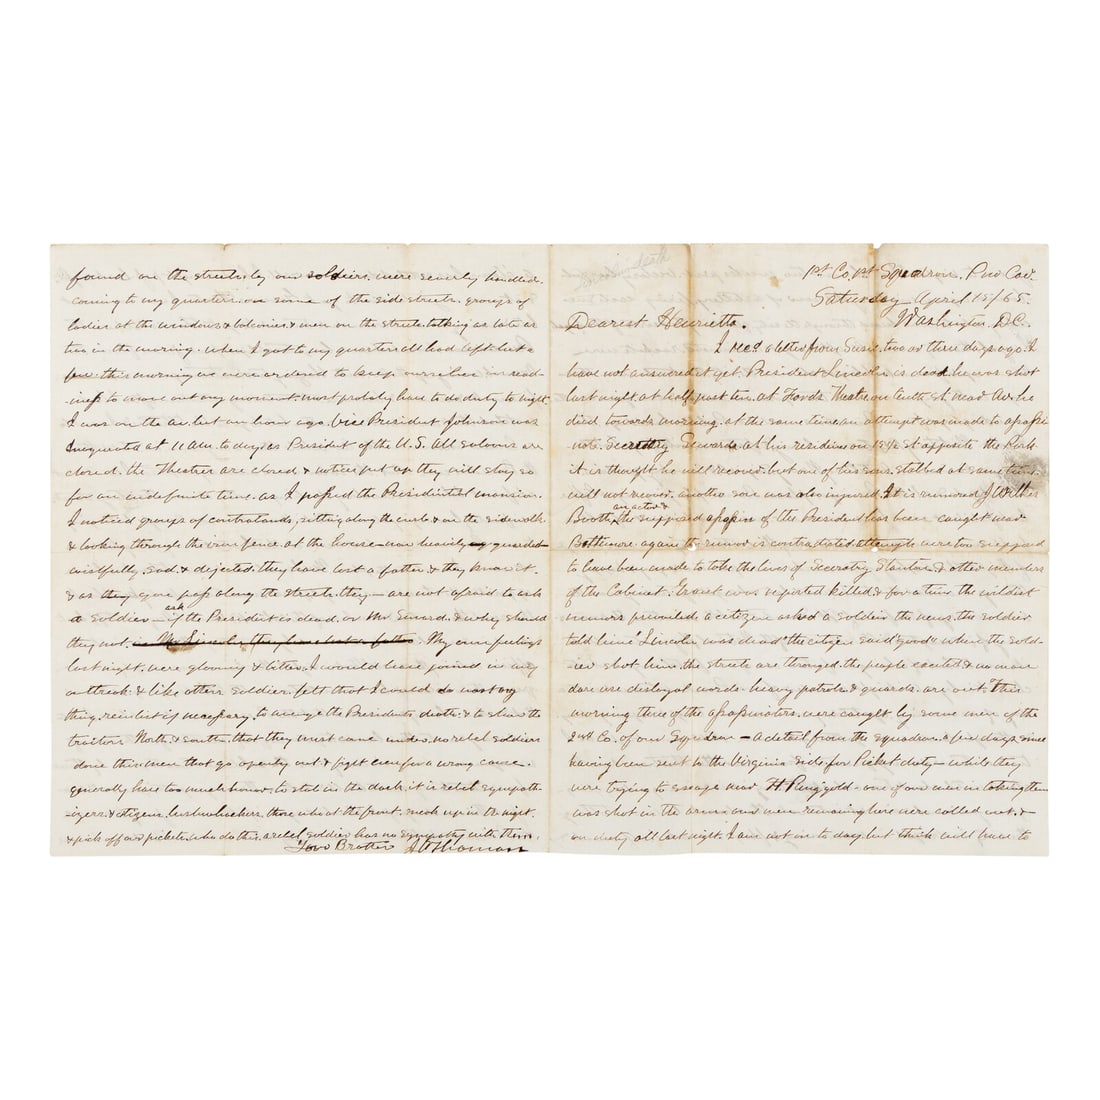 1st Co. 1st Squadron. Pro Cav.
Saturday April 15/65.
Washington. D.C.
Dearest Henrietta.
I recd a letter from Susie. two or three days ago. I
have not answered it yet. President Lincoln is dead. he was shot
last night at half past ten. at Fords Theatre on tenth st near Ave. he
died towards morning. at the same time an attempt was made to assassi
nate Secretary Sewards at his residence on 15 1/2 st opposite the Park
it is thought he will recover. but one of his sons. stabbed at same time.
will not recover. another son was also injured. It is rumored J Wilkes
Booth, an actor & the supposed assassin of the President has been caught near
Baltimore. again the rumor is contradicted. attempts were too supposed
to have been made to take the lives of Secretary Stanton & other members
of the Cabinet. Grant was reported killed & for a time the wildest
rumors prevailed. a citizen asked a soldier the news. the soldier
told him "Lincoln was dead" the citizen said "good" when the sold-
ier shot him. the streets are thronged. the people excited & no man
dare use disloyal words. heavy patrols & guards. are out. This
morning three of the assassinators. were caught by some men of the
2nd Co. of our Squadron – a detail from the squadron. a few days since
having been sent to the Virginia side for Picket duty – while they
were trying to escape near H Ringgold – one of our men in taking them
was shot in the arm. our men remaining here were called out. &
on duty all last night. I am not on to day. but think will have to
found on the streets. by our soldiers. were severly handled.
coming to my quarters. on some of the side streets. groups of
ladies at the windows & balconies & men on the streets. talking as late as
two in the morning. when I got to my quarters all had left but a
few. this morning we were ordered to keep ourselves in read-
iness to move out any moment. most probably have to do duty to night.
I was on the ave. but an hour ago. Vice President Johnson was
Inagurated at 11 a.m. to day. as President of the U.S. All saloons are
closed. the Theatre are closed & notices put up they will stay so
for an indefinite time. as I passed the Presidential mansion.
I noticed groups of contrabands, sitting along the curb & on the sidewalk
& looking through the iron fence at the house – now heavily guarded –
wistfully. sad. & dejected. they have lost a father & they know it.
& as they pass along the streets. they – are not afraid to ask
a soldier – ask if the President is dead. or Mr Seward. & why should
they not. in Mr Lincoln they have lost a father. My own feelings
last night. were gloomy & bitter. I would have joined in any
outbreak. & like others soldier. felt that I could do most any
thing. reinlist if necessary. to avenge the Presidents death. & to show the
traitors North. & South. that they must come under. no rebel soldiers
done this. men that go openly out & fight even for a wrong cause.
generally have too much honor. to stab in the dark. it is rebel sympath-
izers. & citizens. bushwhackers. those who at the front. sneak up in the night.
& pick off our pickets. who do this. a rebel soldier has no sympathy with them.
Your Brother J A Thomas